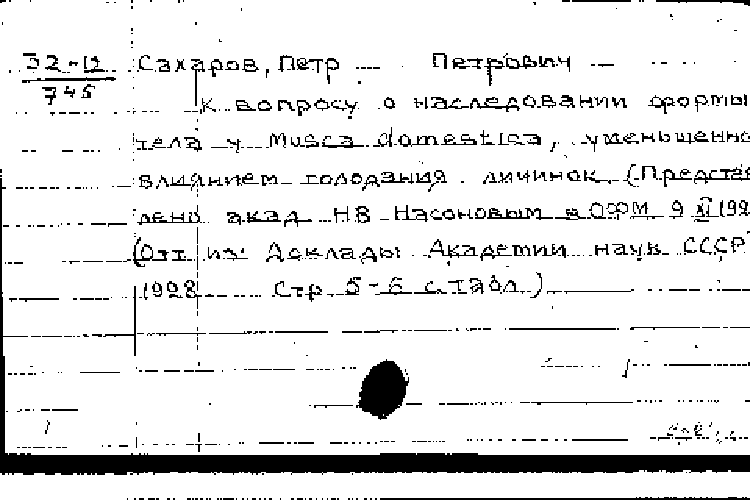 32-12 Сахаров, Петр Петрович
745
К вопросу о наследовании формы
тела у Musca domestica, уменьшенно
влиянием голодания личинок. (Представ
лено акад. НВ Насоновым в ОФМ 9 XI 192
(Отт из: Доклады Академии наук СССР
1928 Стр 5-6 с табл.)